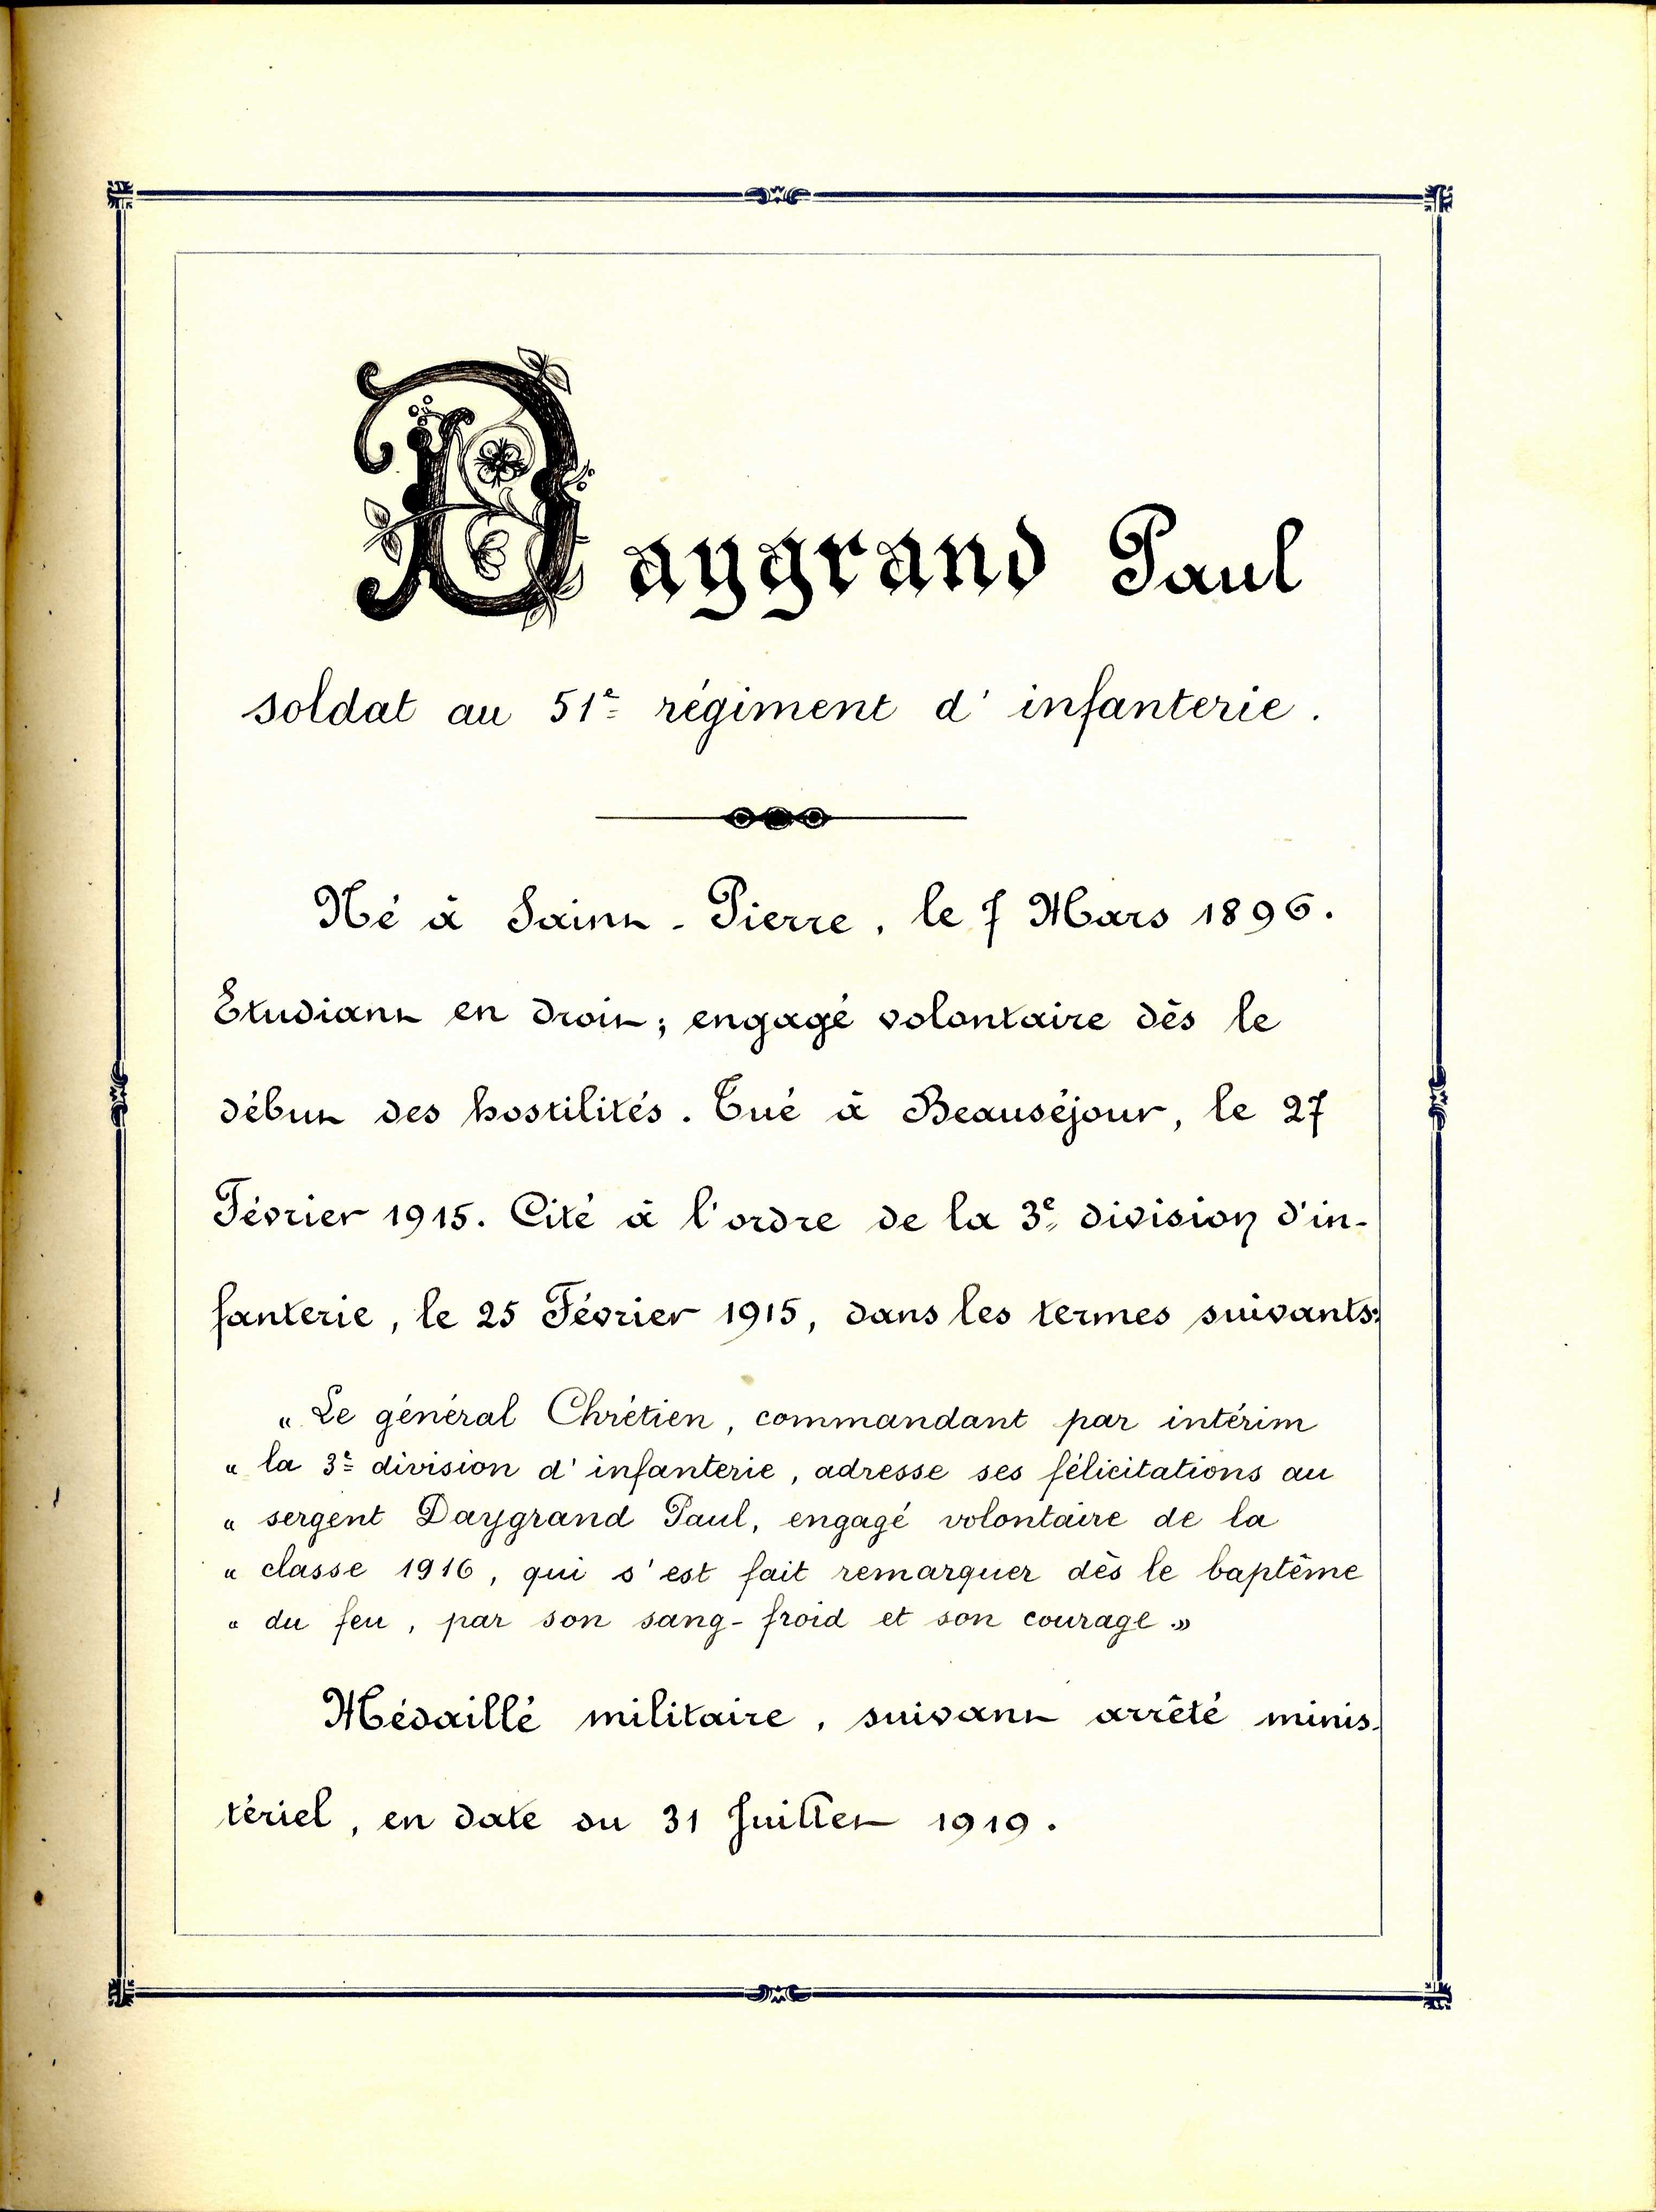 Daygrand Paul
soldat au 51e régiment d'infanterie.
Né à Saint-Pierre, le 7 Mars 1896.
Etudiant en droit; engagé volontaire dès le
début des hostilités. Tué à Beauséjour, le 27
Février 1915. Cité à l'ordre de la 3e division d'in-
fanterie, le 25 Février 1915, dans les termes suivants:
« Le général Chrétien, commandant par intérim
« la 3e division d'infanterie, adresse ses félicitations au
« sergent Daygrand Paul, engagé volontaire de la
« classe 1916, qui s'est fait remarquer dès le baptême
« du feu, par son sang-froid et son courage.»
Médaillé militaire, suivant arrêté minis-
tériel, en date du 31 Juillet 1919.